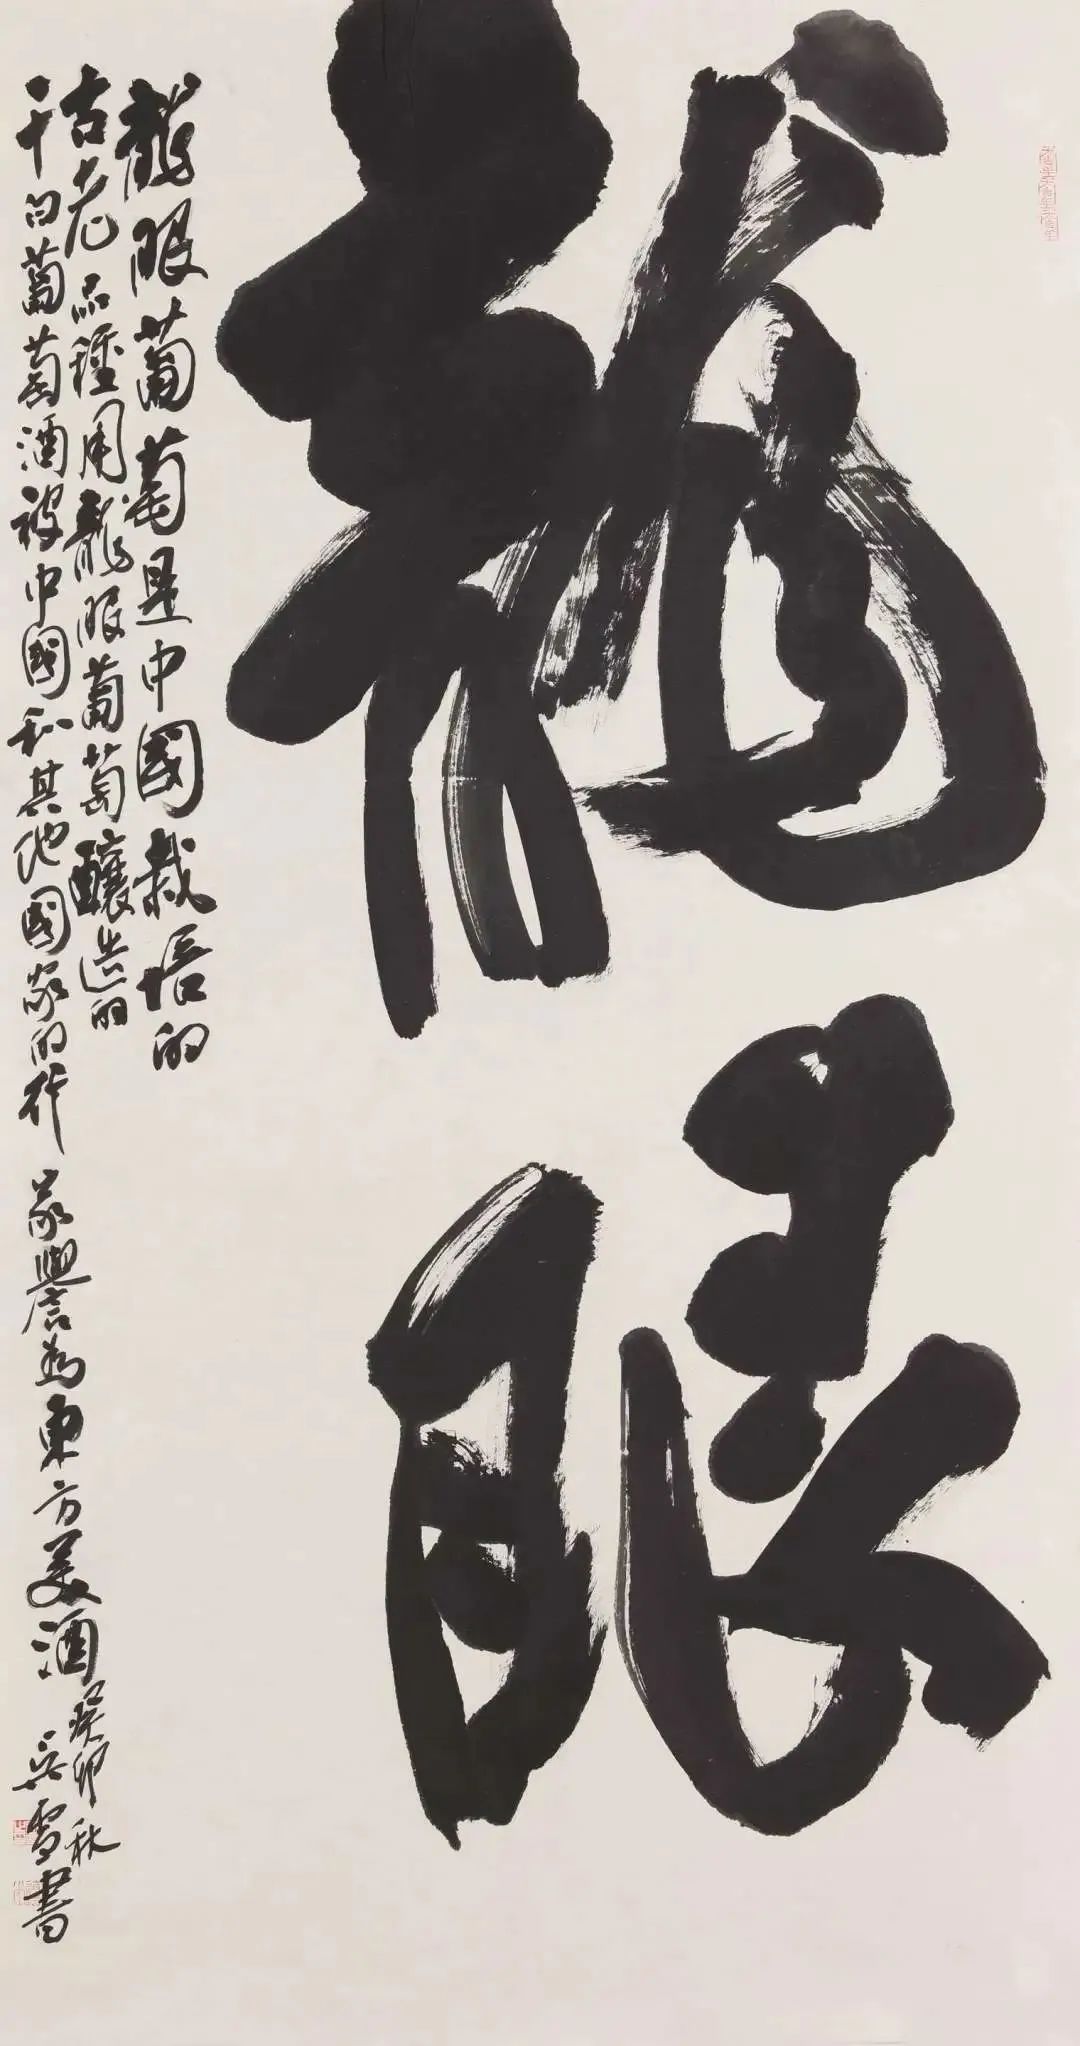 龍眼
龍眼葡萄是中國栽培的
古老品種用龍眼葡萄釀造的
干白葡萄酒被中國和其他國家的行
家譽為東方美酒
癸卯秋
吳雪書